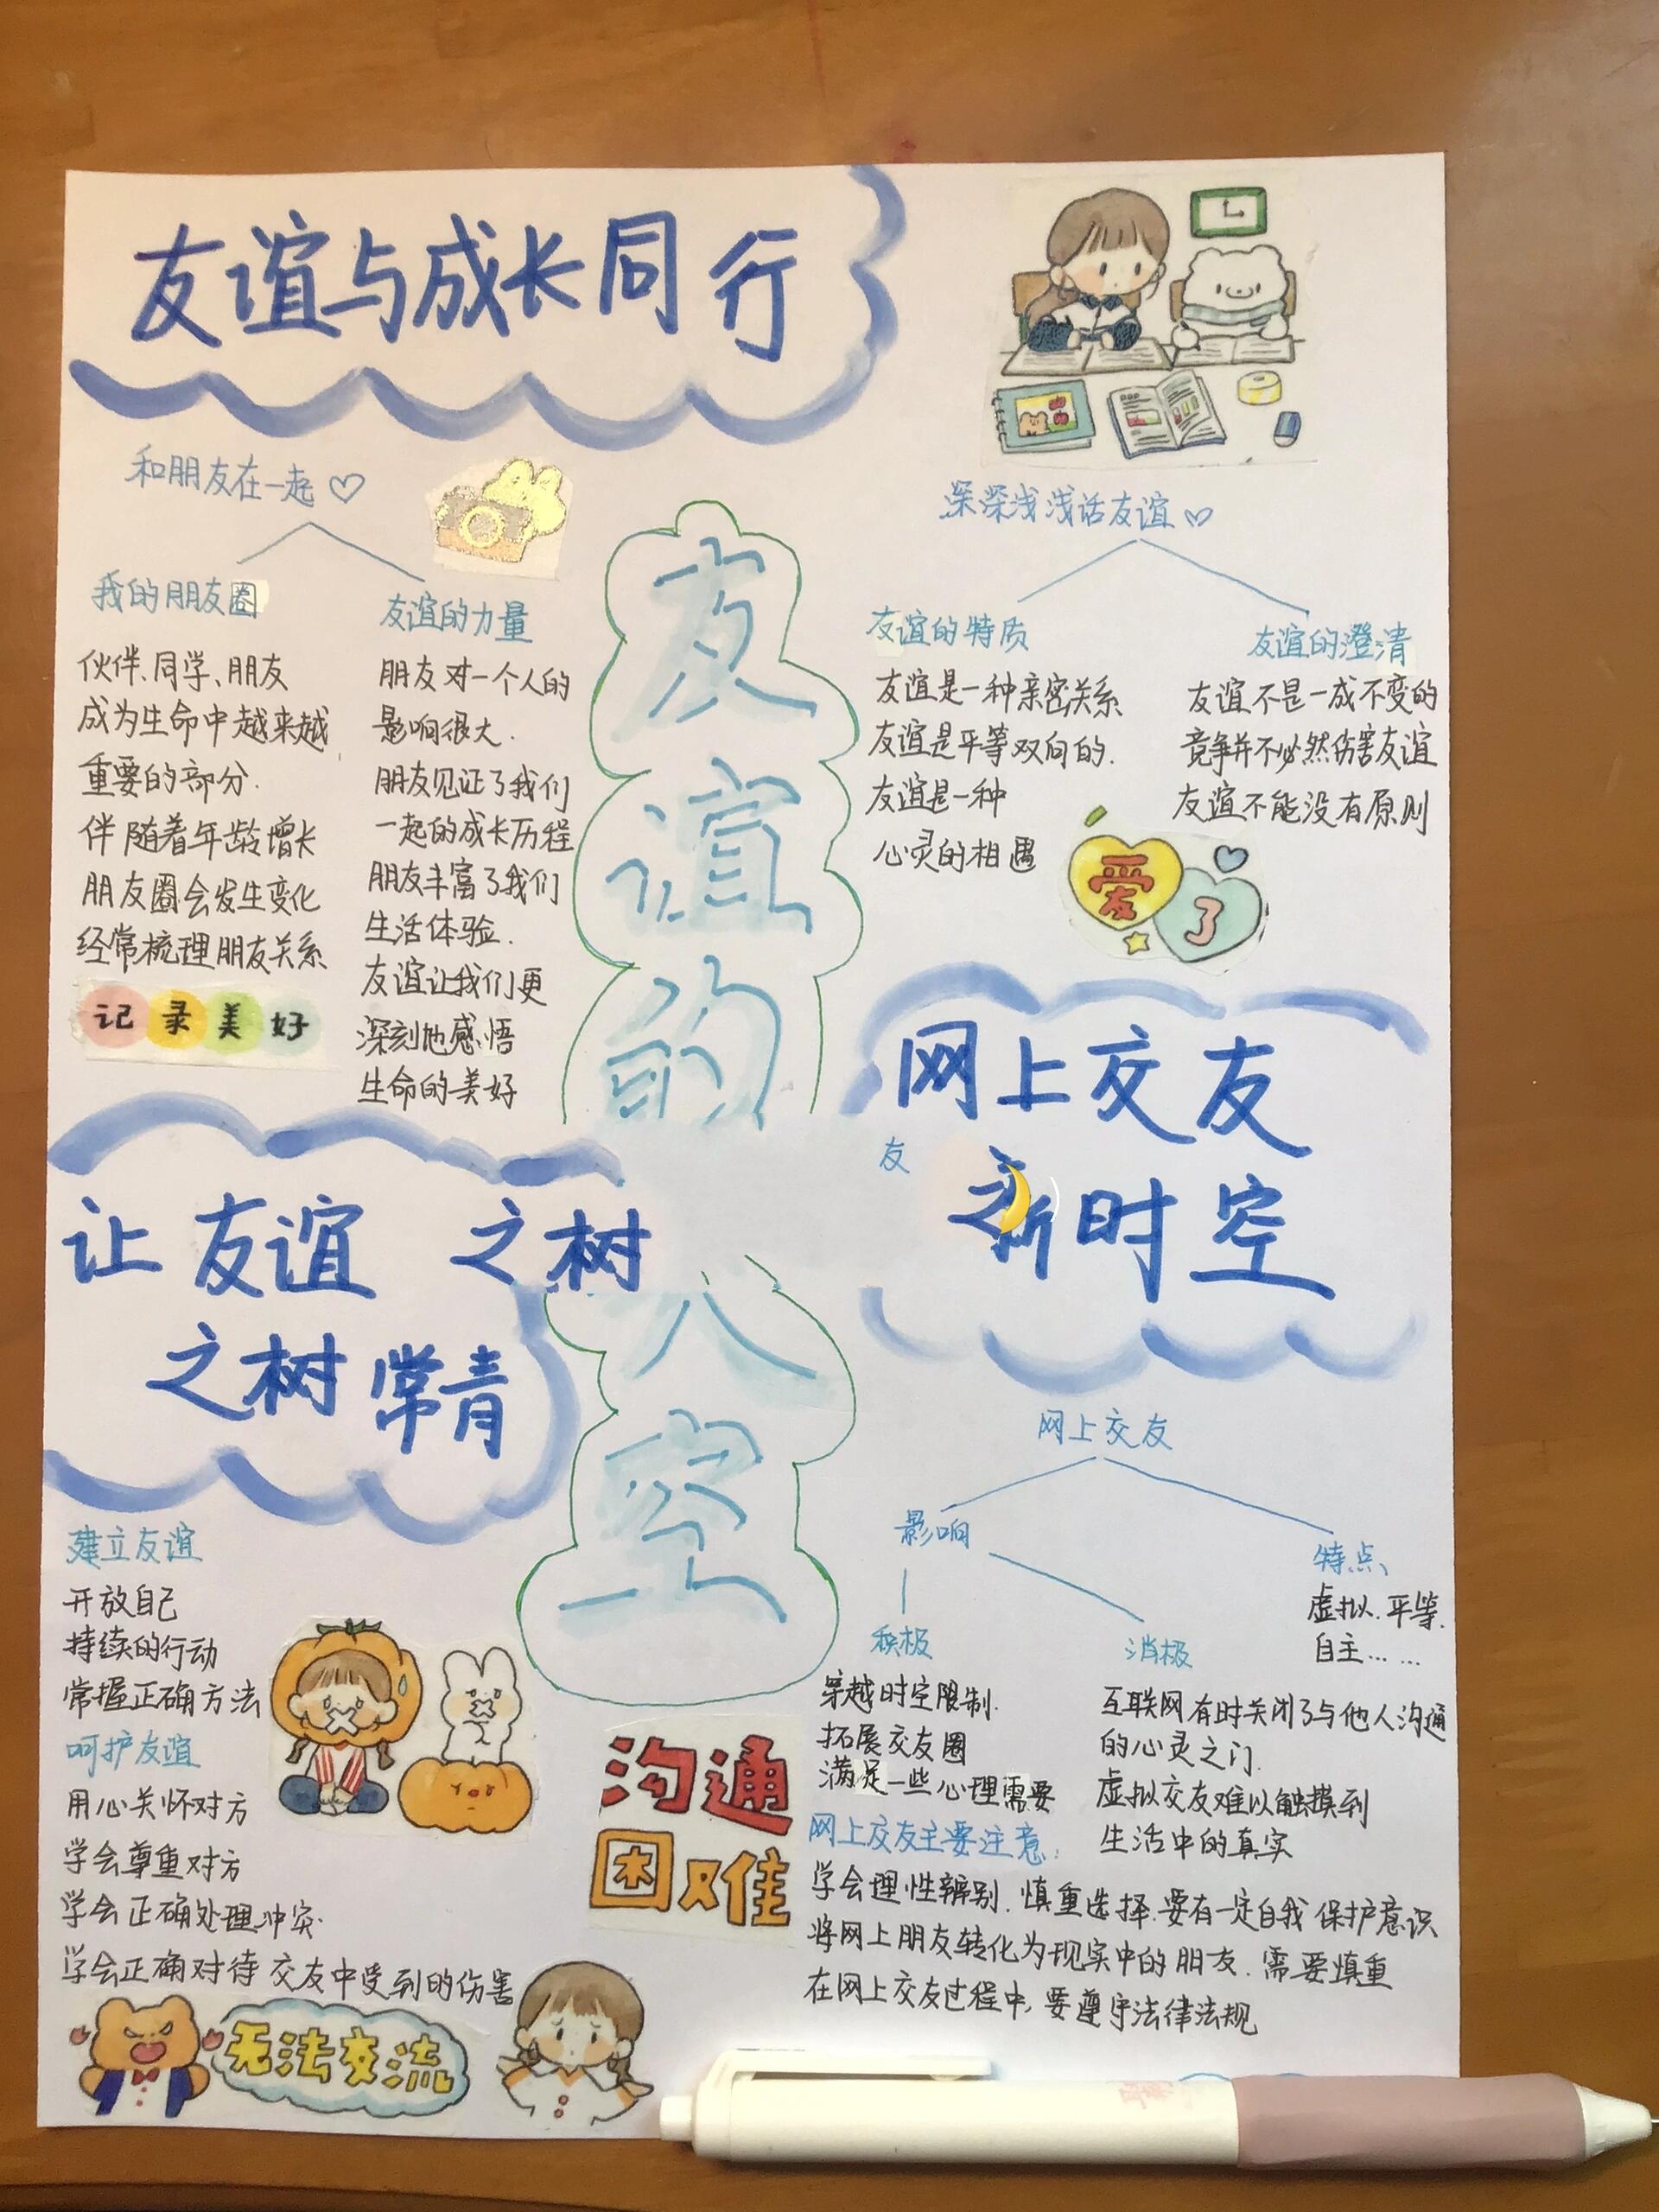 友谊与成长同行
和朋友在一起
我的朋友圈
伙伴、同学、朋友
成为生命中越来越
重要的部分.
伴随着年龄增长
朋友圈会发生变化
经常梳理朋友关系
记录美好
友谊的力量
朋友对一个人的
影响很大.
朋友见证了我们
一起的成长历程
朋友丰富了我们
生活体验.
友谊让我们更
深刻地感悟
生命的美好
友谊的
天空
深深浅浅话友谊
友谊的特质
友谊是一种亲密关系
友谊是平等双向的.
友谊是一种
心灵的相遇
友谊的澄清
友谊不是一成不变的
竞争并不必然伤害友谊
友谊不能没有原则
爱了
让友谊 之树
之树常青
建立友谊
开放自己
持续的行动
常握正确方法
呵护友谊
用心关怀对方
学会尊重对方
学会正确处理冲突.
学会正确对待交友中受到的伤害
无法交流
沟通
困难
网上交友
友
新时空
网上交友
影响
特点
虚拟.平等.
自主……
积极
穿越时空限制.
拓展交友圈
满足一些心理需要
消极
互联网有时关闭了与他人沟通
的心灵之门.
虚拟交友难以触摸到
生活中的真实
网上交友主要注意:
学会理性辨别.慎重选择.要有一定自我保护意识
将网上朋友转化为现实中的朋友.需要慎重
在网上交友过程中,要遵守法律法规